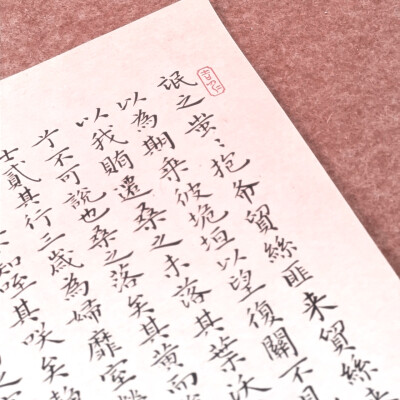 氓之蚩、抱布貿絲匪来貿絲
以為期乘彼垝垣以望復關不見
以我賄遷桑之未落其葉沃
兮不可說也桑之落矣其黃而
士貳其行三歲為婦靡室勞
知咥其咲矣靜